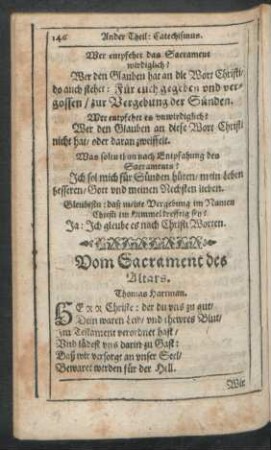 146 Ander Theil: Catechismus.
Wer entpfehet das Sacrament
wirdiglich?
Wer den Glauben hat an die Wort Christi/
do auch stehet: Für euch gegeben vnd ver-
gossen/ zur Vergebung der Sünden.
Wer entpfehet es vnwirdiglich?
Wer den Glauben an diese Wort Christi
nicht hat/ oder daran zweiffelt.
Was soltu thun nach Entpfahung des
Sacraments?
Ich sol mich für Sünden hüten/ mein Leben
besseren/ Gott vnd meinen Nechsten lieben.
Gleubestu: daß meine Vergebung im Namen
Christi im Himmel krefftig sey?
Ja: Ich gleube es nach Christi Worten.
Vom Sacrament des
Altars.
Thomas Hartman.
HErr Christe: der du vns zu gut/
Dein waren Leib/ vnd thewres Blut/
im Testament verordnet hast/
Vnd lädest vns darin zu Gast:
Daß wir versorgt an vnser Seel/
Bewaret werden für der Hell.
Wir